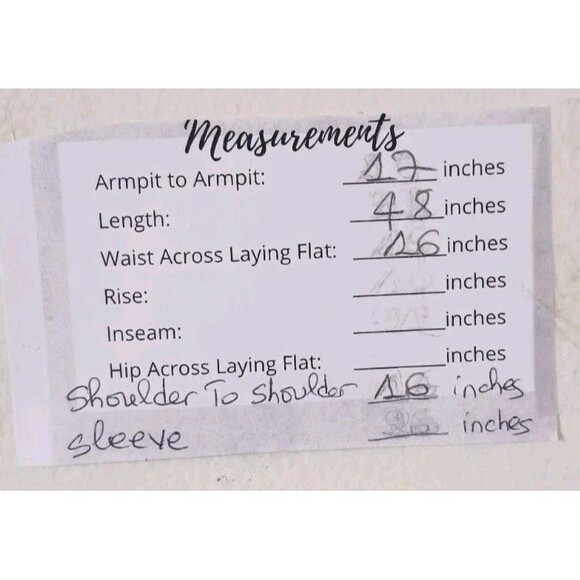 Measurements
Armpit to Armpit: 17 inches
Length: 48 inches
Waist Across Laying Flat: 16 inches
Rise: inches
Inseam: inches
Hip Across Laying Flat: inches
Shoulder To Shoulder 16 inches
sleeve inches